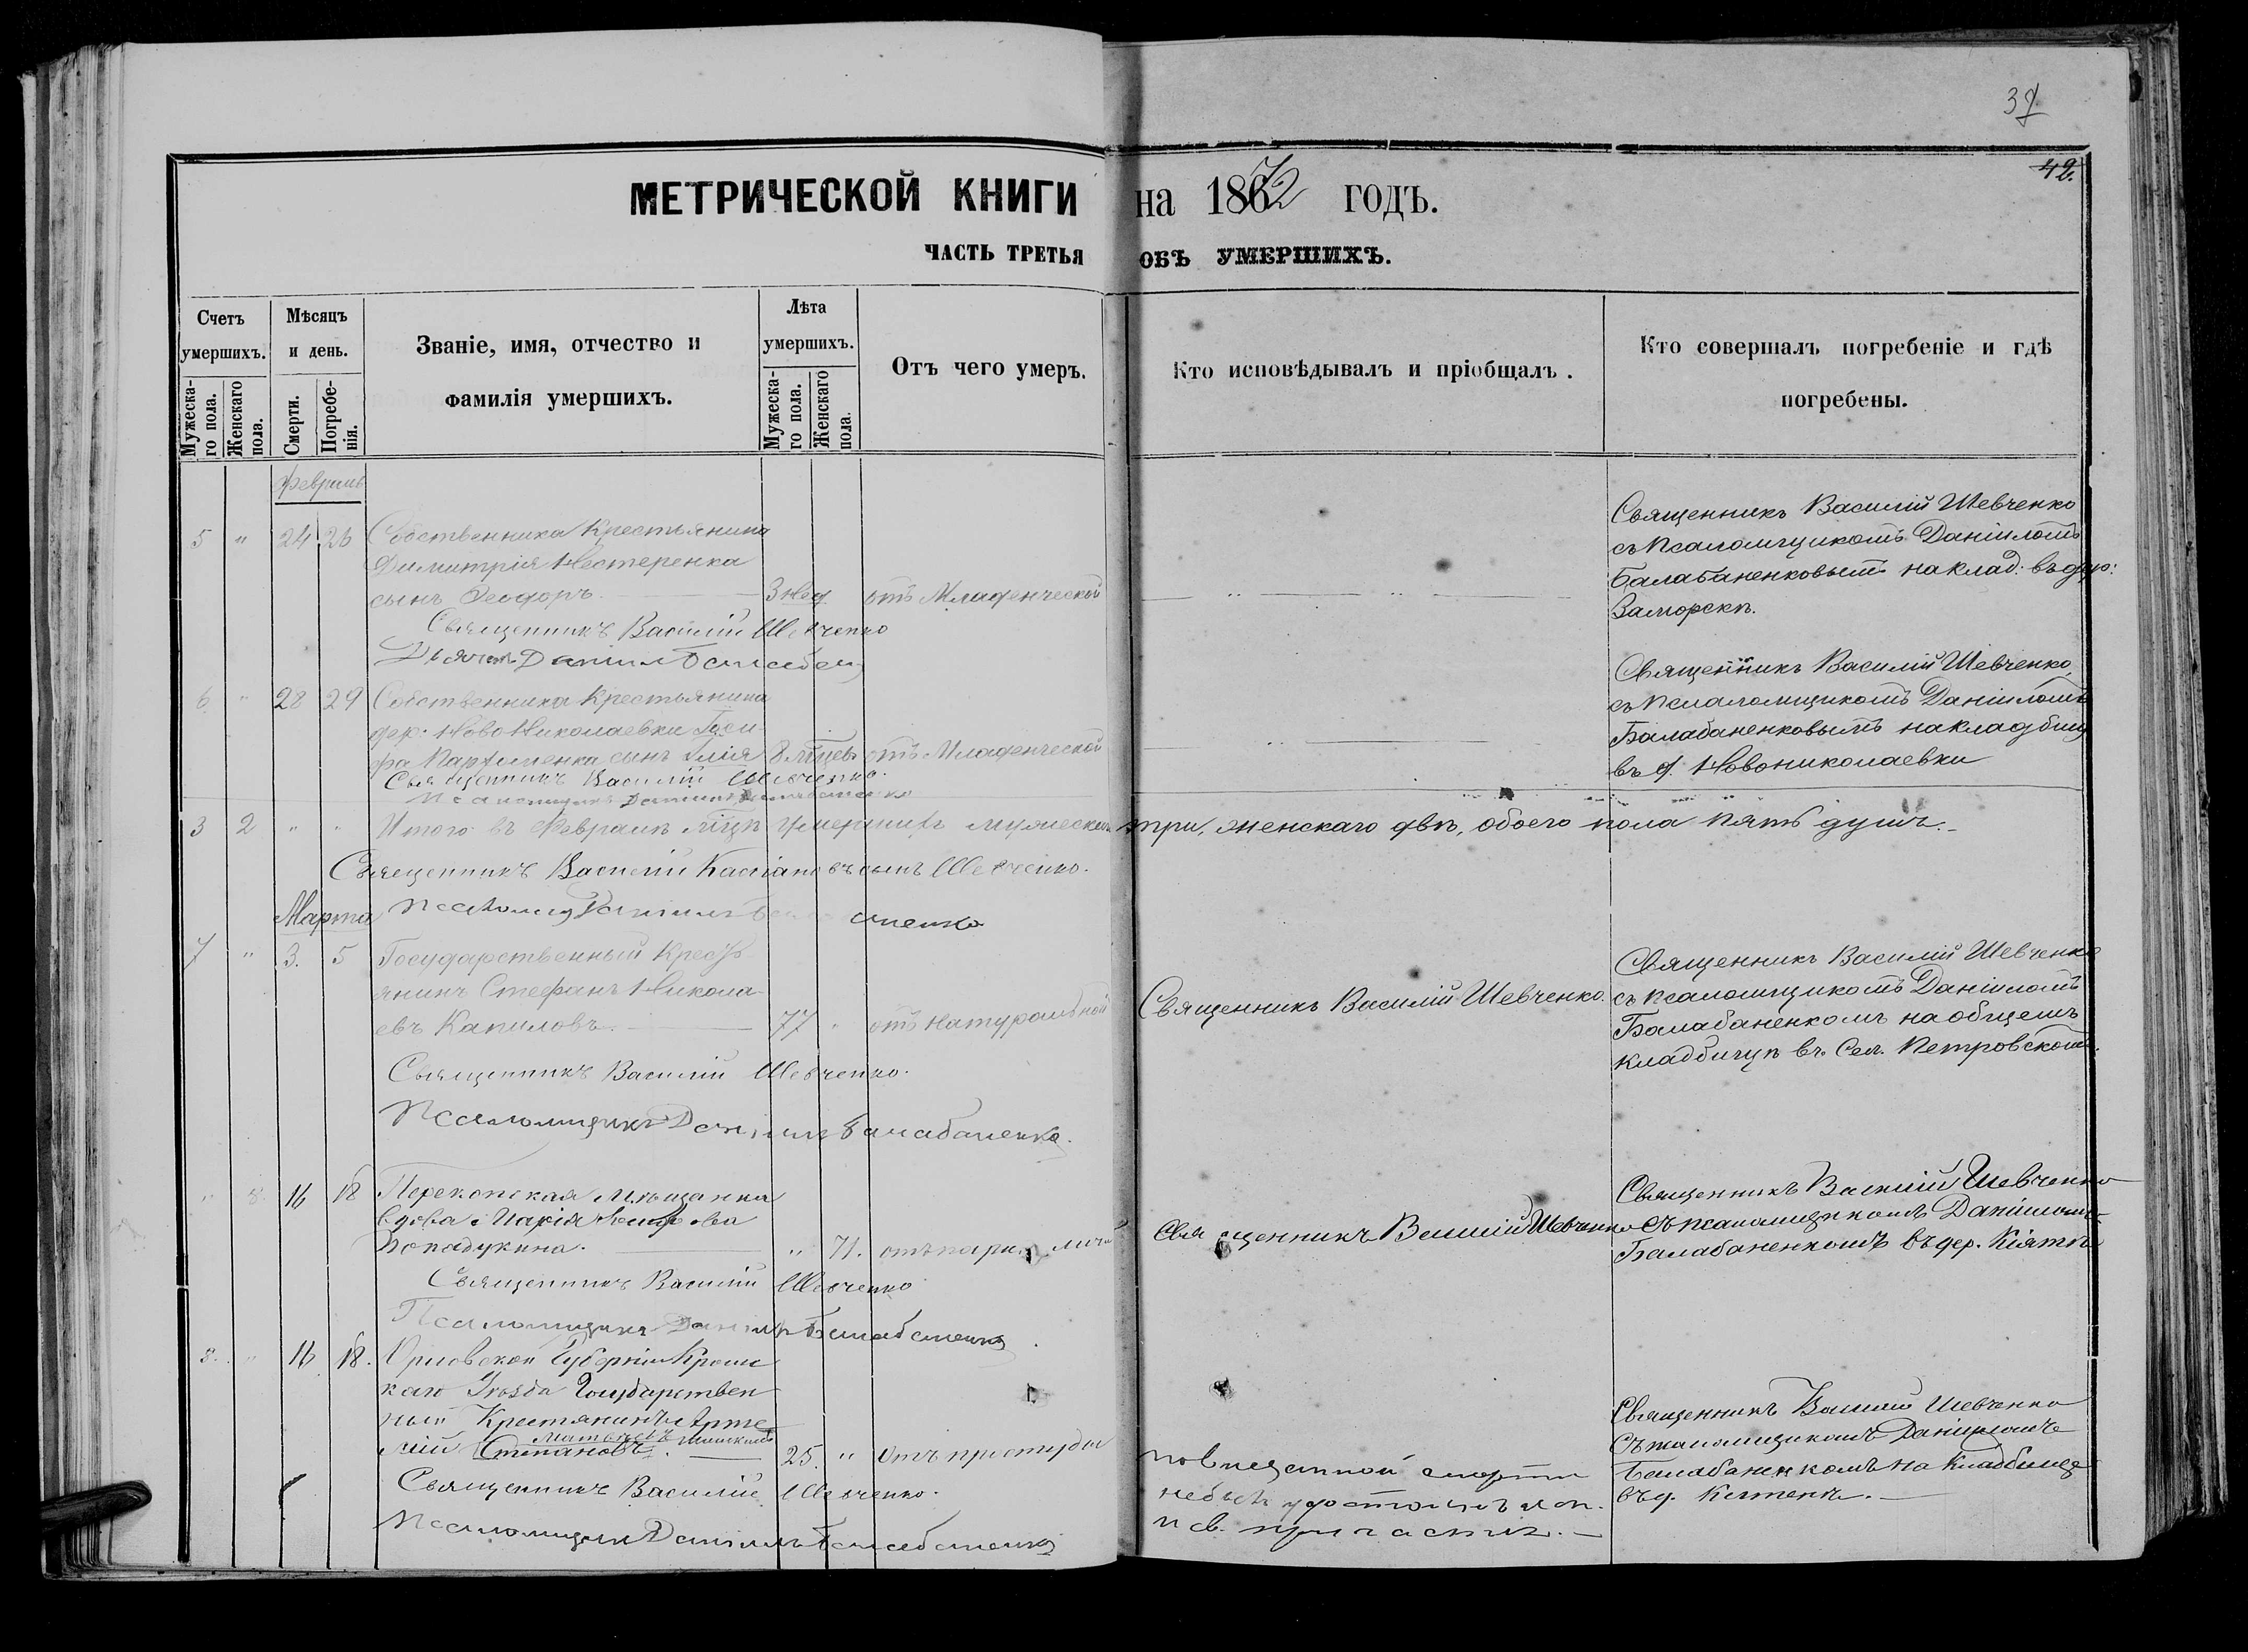 37
42.
МЕТРИЧЕСКОЙ КНИГИ на 1872 годъ.
ЧАСТЬ ТРЕТЬЯ ОБЪ УМЕРШИХЪ.
Счетъ умершихъ.
Мужеска-го пола.
Женскаго пола.
Мѣсяцъ и день.
Смерти.
Погребе-нія.
Званіе, имя, отчество и
фамилія умершихъ.
Лѣта умершихъ.
Мужеска-го пола.
Женскаго пола.
Отъ чего умеръ.
Кто исповѣдывалъ и пріобщалъ.
Кто совершалъ погребеніе и гдѣ
погребены.
Февраль
5 " 24 26 Собственника Крестьянина
Димитрія Нестеренка
сынъ Ѳеодоръ 3 нед отъ Младенческой
Священникъ Василій Шевченко
Даніилъ
Священникъ Василій Шевченко
съ Псаломщикомъ Даніиломъ
Балабаненковымъ на клад: въ дер:
Заморскѣ.
6 " 28 29 Собственника Крестьянина
дер. Ново Николаевки Іоси
фа Пархоменка сынъ Илія 8 мѣсев отъ Младенческой
Священникъ Василій Шевченко.
Псаломщикъ Даніилъ Балабаненко
Священникъ Василій Шевченко
съ Псаломщикомъ Даніиломъ
Балабаненковымъ на кладбищ
въ д. Новониколаевки
3 2 " " Итого въ Февралѣ мцѣ умершихъ мужеска три, женскаго двѣ, обоего пола пять душъ.
Священникъ Василій Кассіановъ сынъ Шевченко.
Марта
Псаломщ Даніилъ
7 " 3. 5 Государственный Крест
янинъ Стефанъ Никола
евъ Капиловъ 77 " отъ натуральной
Священникъ Василій Шевченко.
Псаломщикъ Даніилъ Балабаненко.
Священникъ Василій Шевченко.
Священникъ Василій Шевченко
съ псаломщикомъ Даніиломъ
Балабаненкомъ на общемъ
кладбищѣ въ Сел. Петровскомъ.
" 8 16 18 Перекопская Мѣщанка
вдова Марія
Попадукина. " 71. отъ
Священникъ Василій Шевченко
Псаломщикъ Даніилъ Балабаненко
Священникъ Василій Шевченко
Священникъ Василій Шевченко
съ псаломщикомъ Даніиломъ
Балабаненкомъ въ дер. Кіятъ
8. " 16 18. Орловской Губерніи Кромс
каго Уѣзда Государствен
ный Крестянинъ Арте
мій Степановъ. 25. " Отъ простуды
Матвѣевъ
Священникъ Василій Шевченко.
Псаломщикъ Даніилъ Балабаненко
смерти
небылъ удостоенъ исп.
и св. причастія.
Священникъ Василій Шевченко
съ псаломщикомъ Даніиломъ
Балабаненкомъ на Кладбищѣ
въ д.